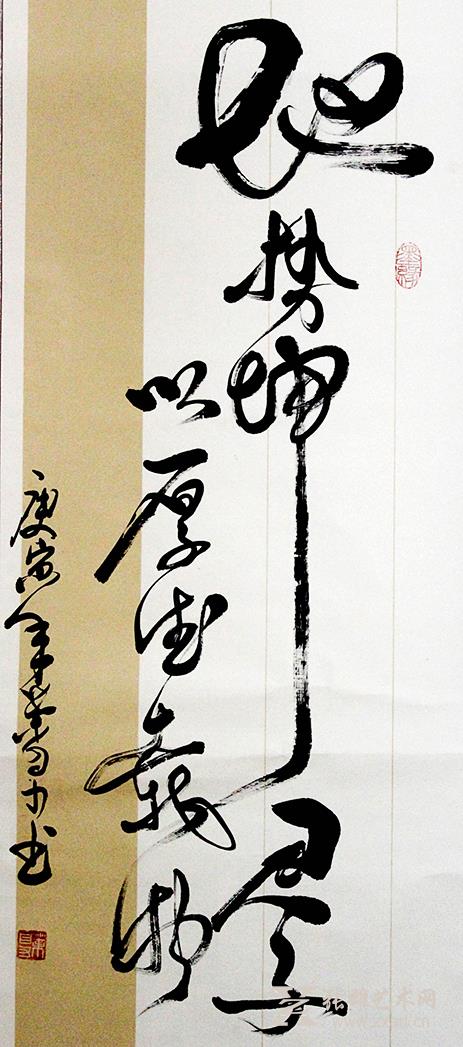 地势坤君子
以厚德载物
庚寅年书
艺术网